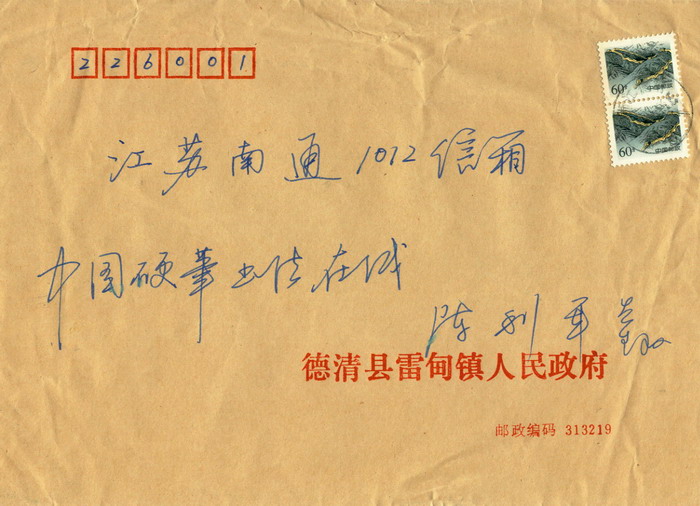 226001
江苏南通1012信箱
中国硬笔书法在线
陈利军
德清县雷甸镇人民政府
邮政编码 313219
60分
60分